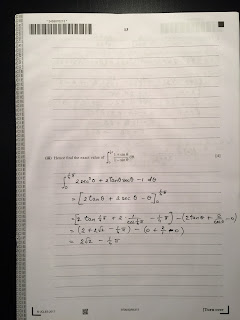 13
(iii) Hence find the exact value of ∫₀^{¼π} (1 + sin θ)/(1 − sin θ) dθ. [4]
∫₀^{¼π} 2 sec²θ + 2 tanθ secθ − 1 dθ
= [2 tan θ + 2 sec θ − θ]₀^{¼π}
= (2 tan ¼π + 2 · 1/cos ¼π − ¼π) − (2 tan 0 + 2/cos 0 − 0)
= (2 + 2√2 − ¼π) − (0 + 2/1 − 0)
= 2√2 − ¼π
[Turn over